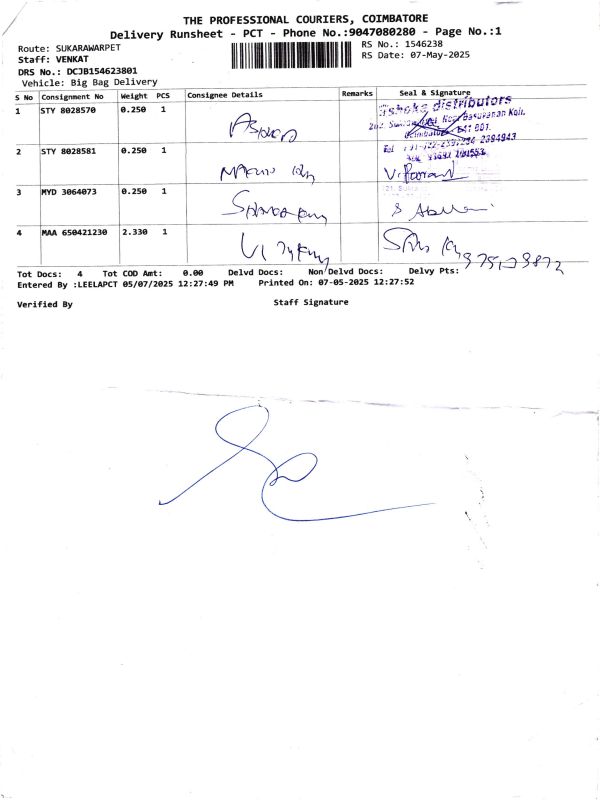 THE PROFESSIONAL COURIERS, COIMBATORE
Delivery Runsheet - PCT - Phone No.:9047080280 - Page No.:1
Route: SUKARAWARPET
RS No.: 1546238
Staff: VENKAT
RS Date: 07-May-2025
DRS No.: DCJB154623801
Vehicle: Big Bag Delivery
S No Consignment No Weight PCS Consignee Details Remarks Seal & Signature
1 STY 8028570 0.250 1 Ashoka distributors
2 STY 8028581 0.250 1
3 MYD 3064073 0.250 1
4 MAA 650421230 2.330 1
Tot Docs: 4 Tot COD Amt: 0.00 Delvd Docs: Non Delvd Docs: Delvy Pts:
Entered By :LEELAPCT 05/07/2025 12:27:49 PM Printed On: 07-05-2025 12:27:52
Verified By Staff Signature